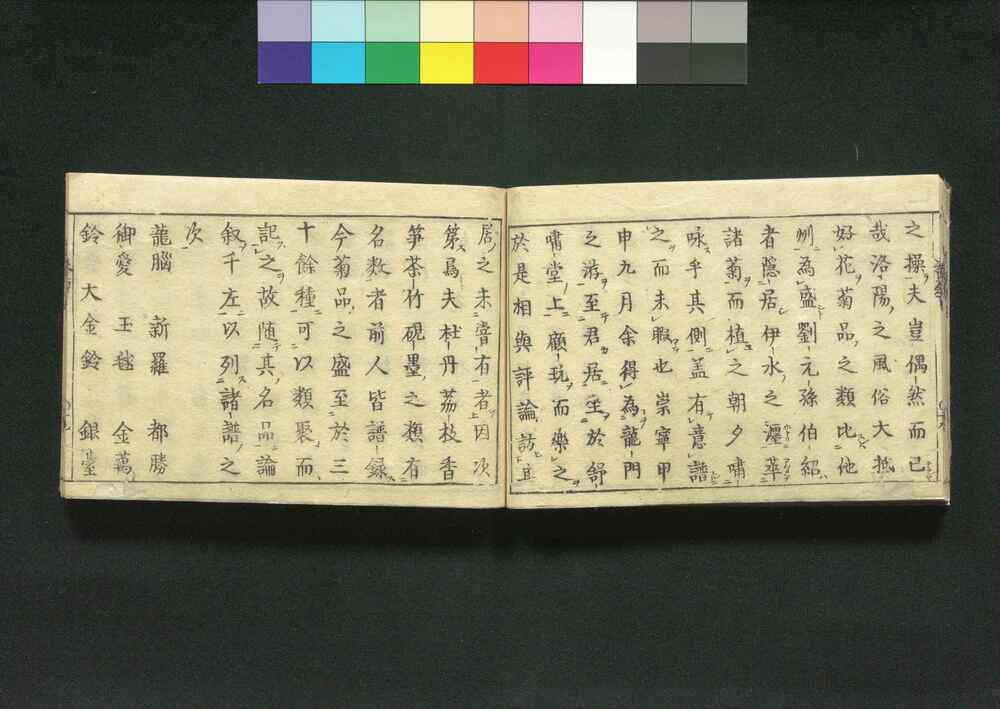 之操夫豈偶然而已
哉洛陽之風俗大抵
好花菊品之類比他
州為盛劉元孫伯紹
者隠居伊水之瀍萃
諸菊而植之朝夕嘯
咏乎其側盖有意譜
之而未暇也崇寧甲
申九月余得為龍門
之游至君居坐於舒
嘯堂上顧玩而樂之
於是相與評論訪且
居之未嘗有者因次
第焉夫牡丹荔枝香
笋茶竹硯墨之類有
名数者前人皆譜録
今菊品之盛至於三
十餘種可以類聚而
記之故随其名品論
叙于左以列諸譜之
次
龍腦 新羅 都勝
御愛 玉毬 金萬
鈴大金鈴 銀臺